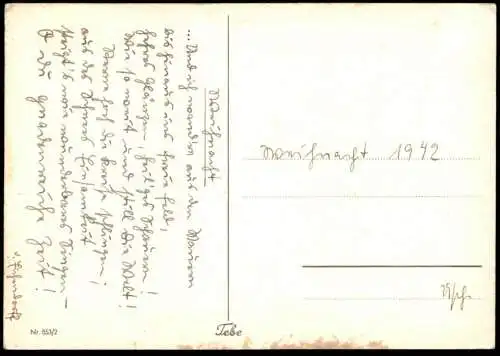 Weihnacht
... Und ich wandre aus den Mauern
Bis hinaus ins freie Feld,
Hehres Glänzen, heil'ges Schauern!
Wie so weit und still die Welt!
Sterne hoch die Kreise schlingen;
aus des Schnees Einsamkeit
steigt's wie wunderbares Singen –
O du gnadenreiche Zeit!
v. Eichendorff
Weihnacht 1942
Nr. 553/2
Tebe